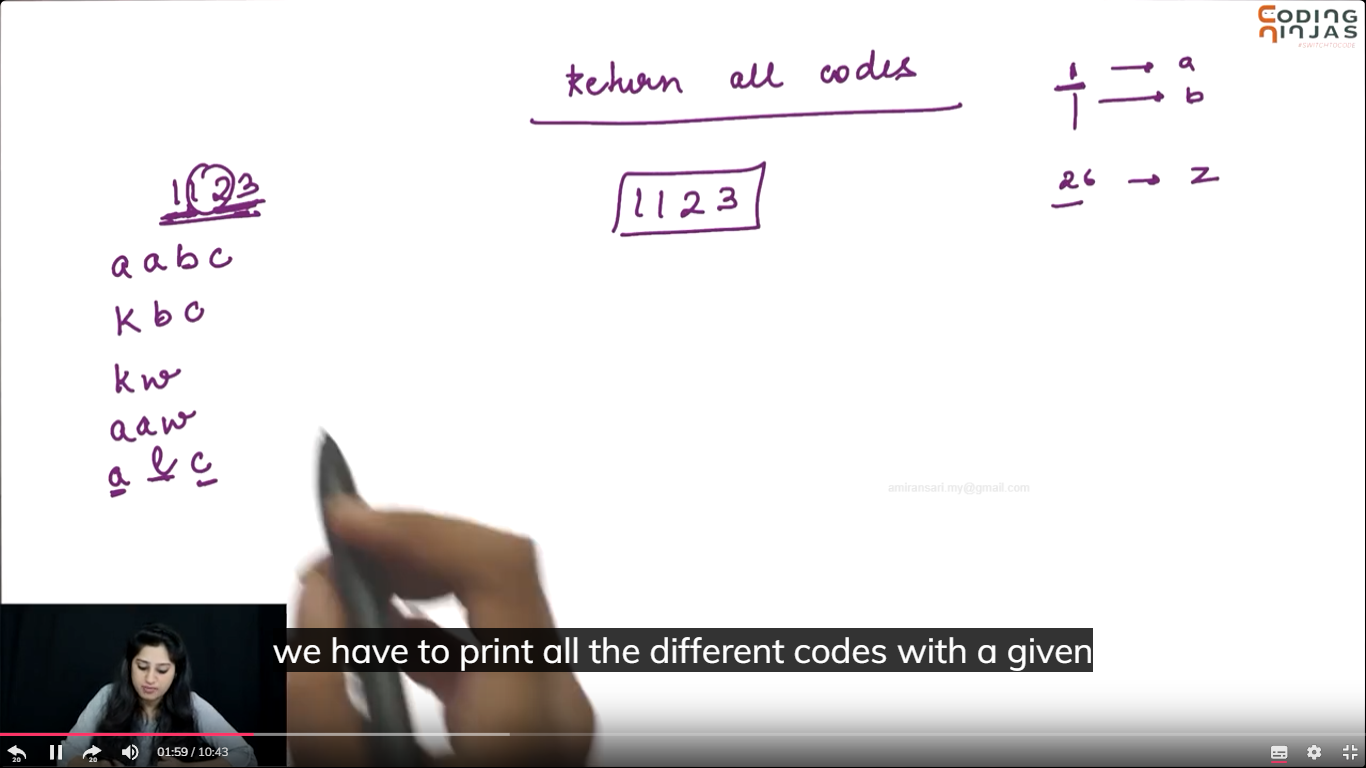 CODING
NINJAS
#SWITCHTOCODE
Return all codes
1 → a
| → b
26 → z
1123
1123
aabc
kbc
kw
aaw
a l c
amiransari.my@gmail.com
we have to print all the different codes with a given
20
20
01:59 / 10:43